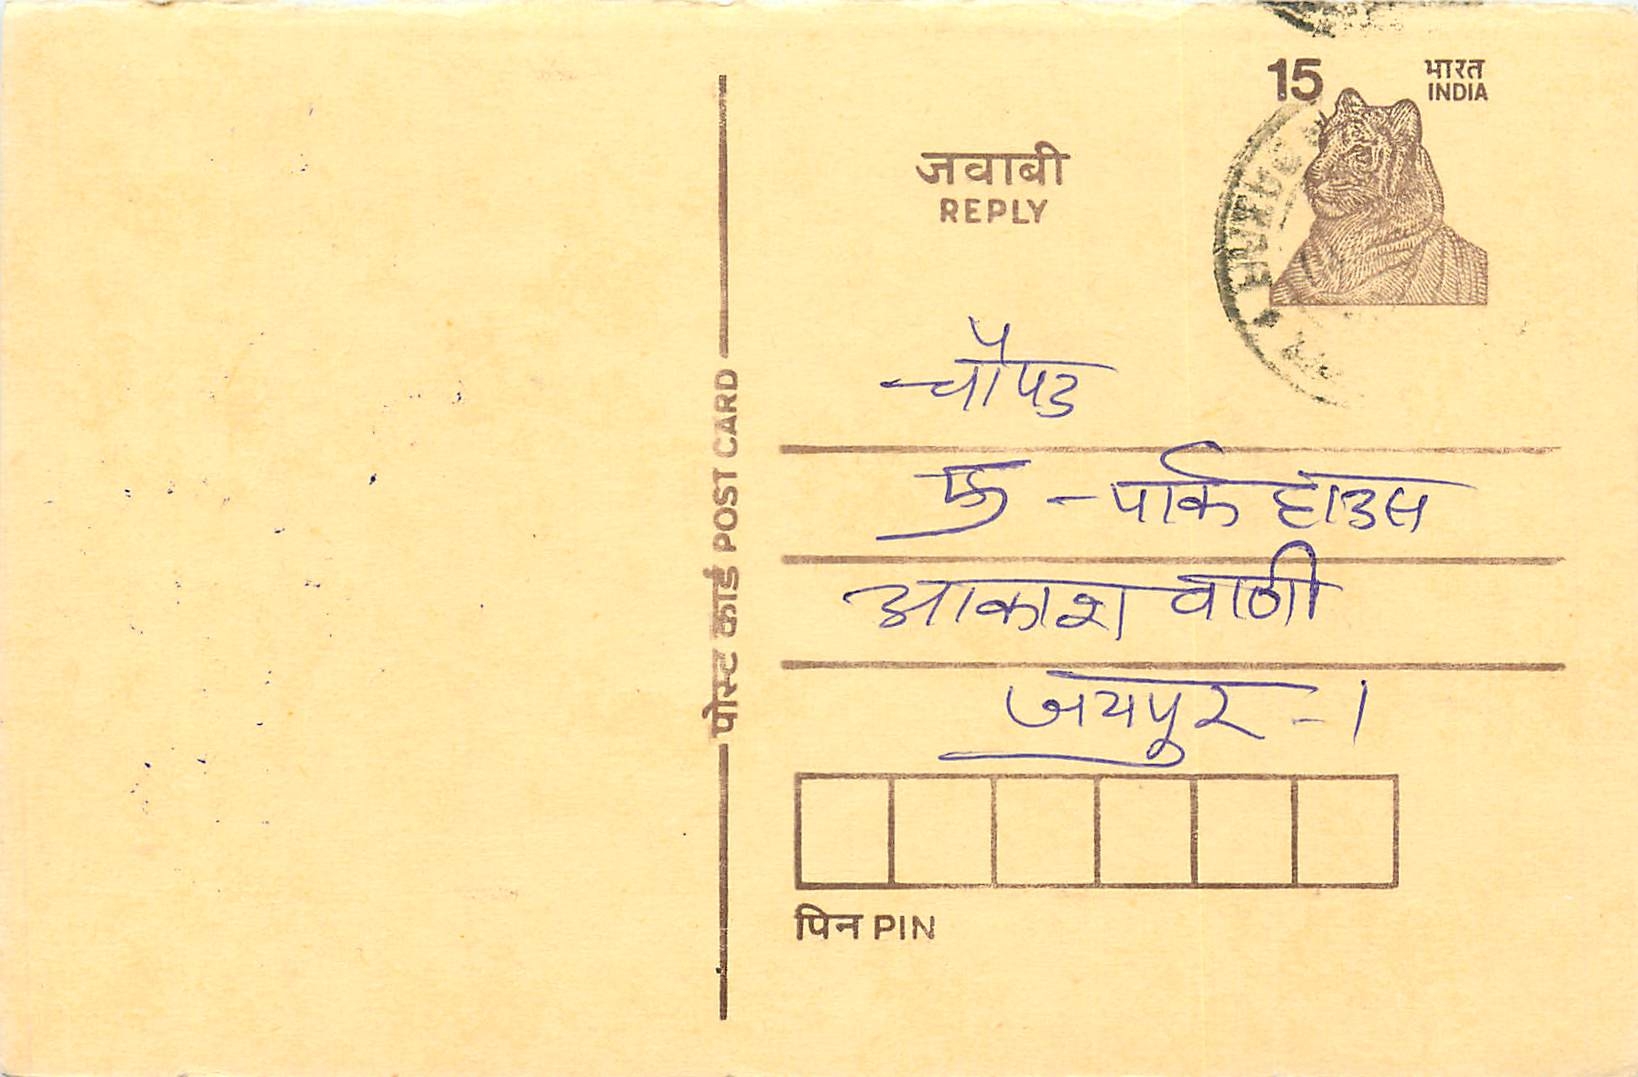 15 भारत
INDIA
जवाबी
REPLY
चौपड
एम - पार्क हाउस
आकाश वाणी
जयपुर - 1
पोस्ट कार्ड POST CARD
पिन PIN